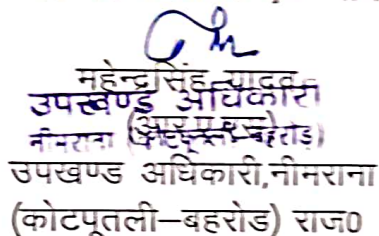 महेन्द्रसिंह यादव
उपखण्ड अधिकारी
नीमराना (कोटपूतली-बहरोड़)
उपखण्ड अधिकारी,नीमराना
(कोटपूतली–बहरोड) राज0